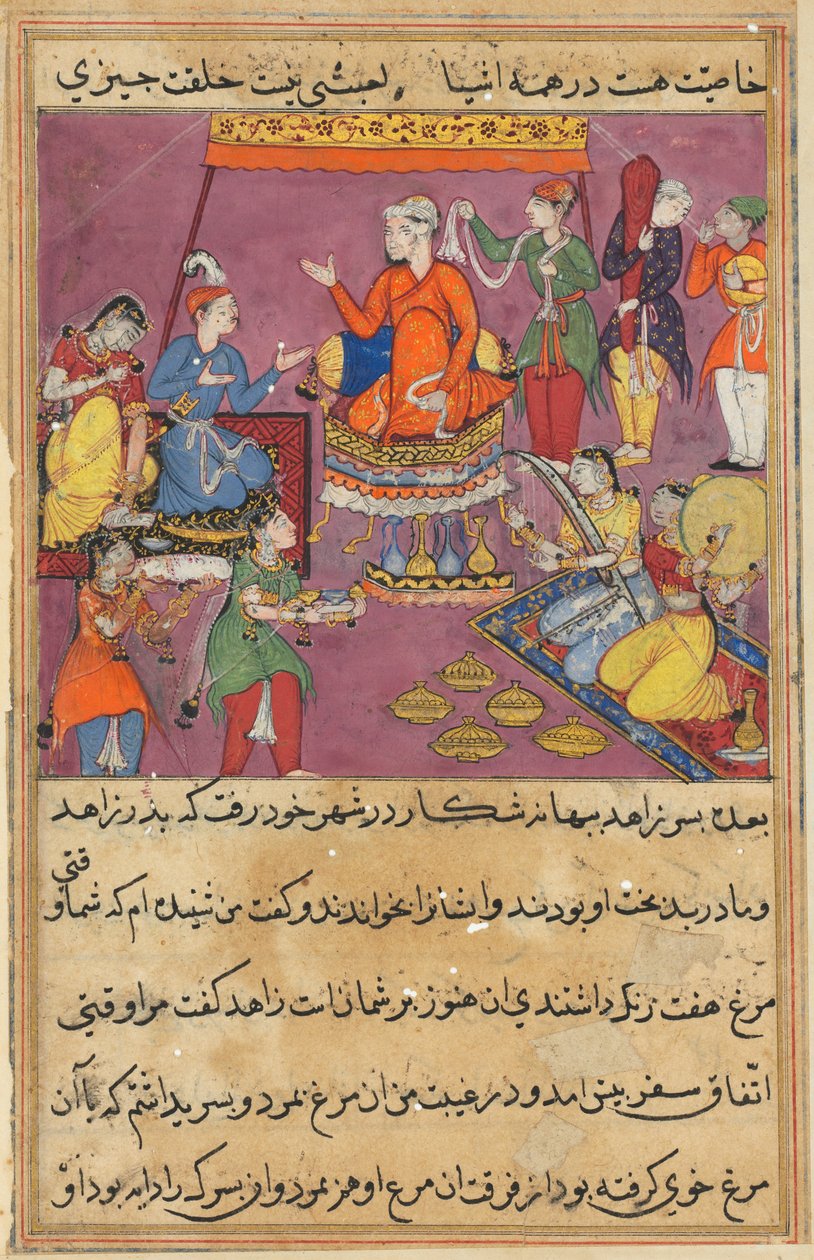 خاصیّت هست در همه اشیا لعبثی نیست خلقت چیزی
بعده بسر زاهد ببهانه شکار در شهر خود رفت که بذر زاهد
و مادر بدبخت او بودند و ایشانرا بخواندند و کفت من شنیده ام که شما وقتی
مرغ هفت زنک داشتندی ان هنوز بر شمانراست زاهد کفت مرا وقتی
اتّفاق سفر بیش امد و در غیبت من ان مرغ بمرد و بسریداشتم که باآن
مرغ خوی کرفته بود از فرقت ان مرغ او هم بمرد و ان بسر که را دایه بود او